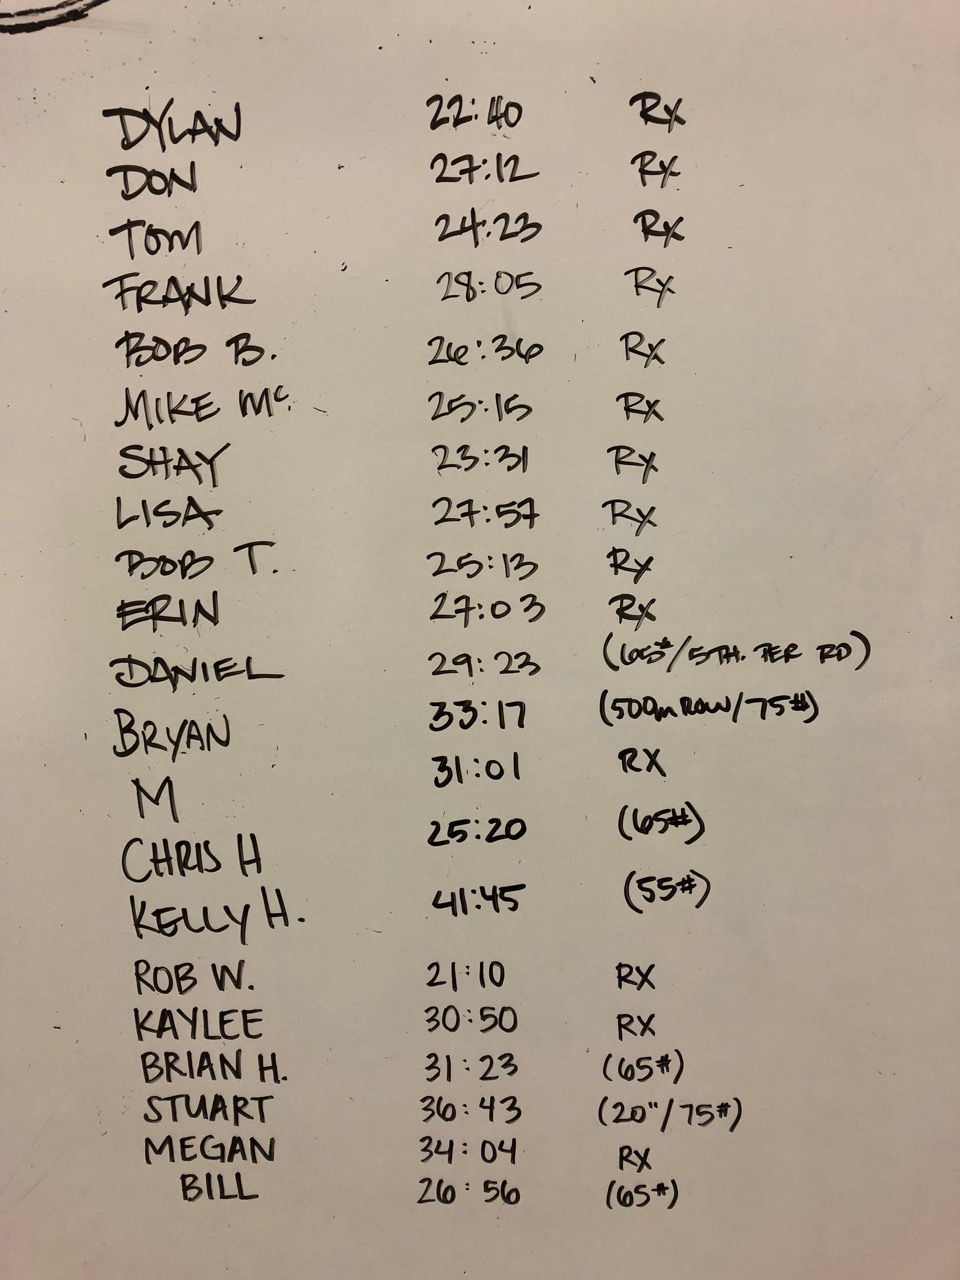 DYLAN 22:40 Rx
DON 27:12 Rx
TOM 24:23 Rx
FRANK 28:05 Rx
BOB B. 26:36 Rx
MIKE Mc. 25:15 Rx
SHAY 23:31 Rx
LISA 27:57 Rx
BOB T. 25:13 Rx
ERIN 27:03 Rx
DANIEL 29:23 (65#/5TH. PER RD)
BRYAN 33:17 (500m ROW/75#)
M 31:01 RX
CHRIS H 25:20 (65#)
KELLY H. 41:45 (55#)
ROB W. 21:10 RX
KAYLEE 30:50 RX
BRIAN H. 31:23 (65#)
STUART 36:43 (20"/75#)
MEGAN 34:04 RX
BILL 26:56 (65#)